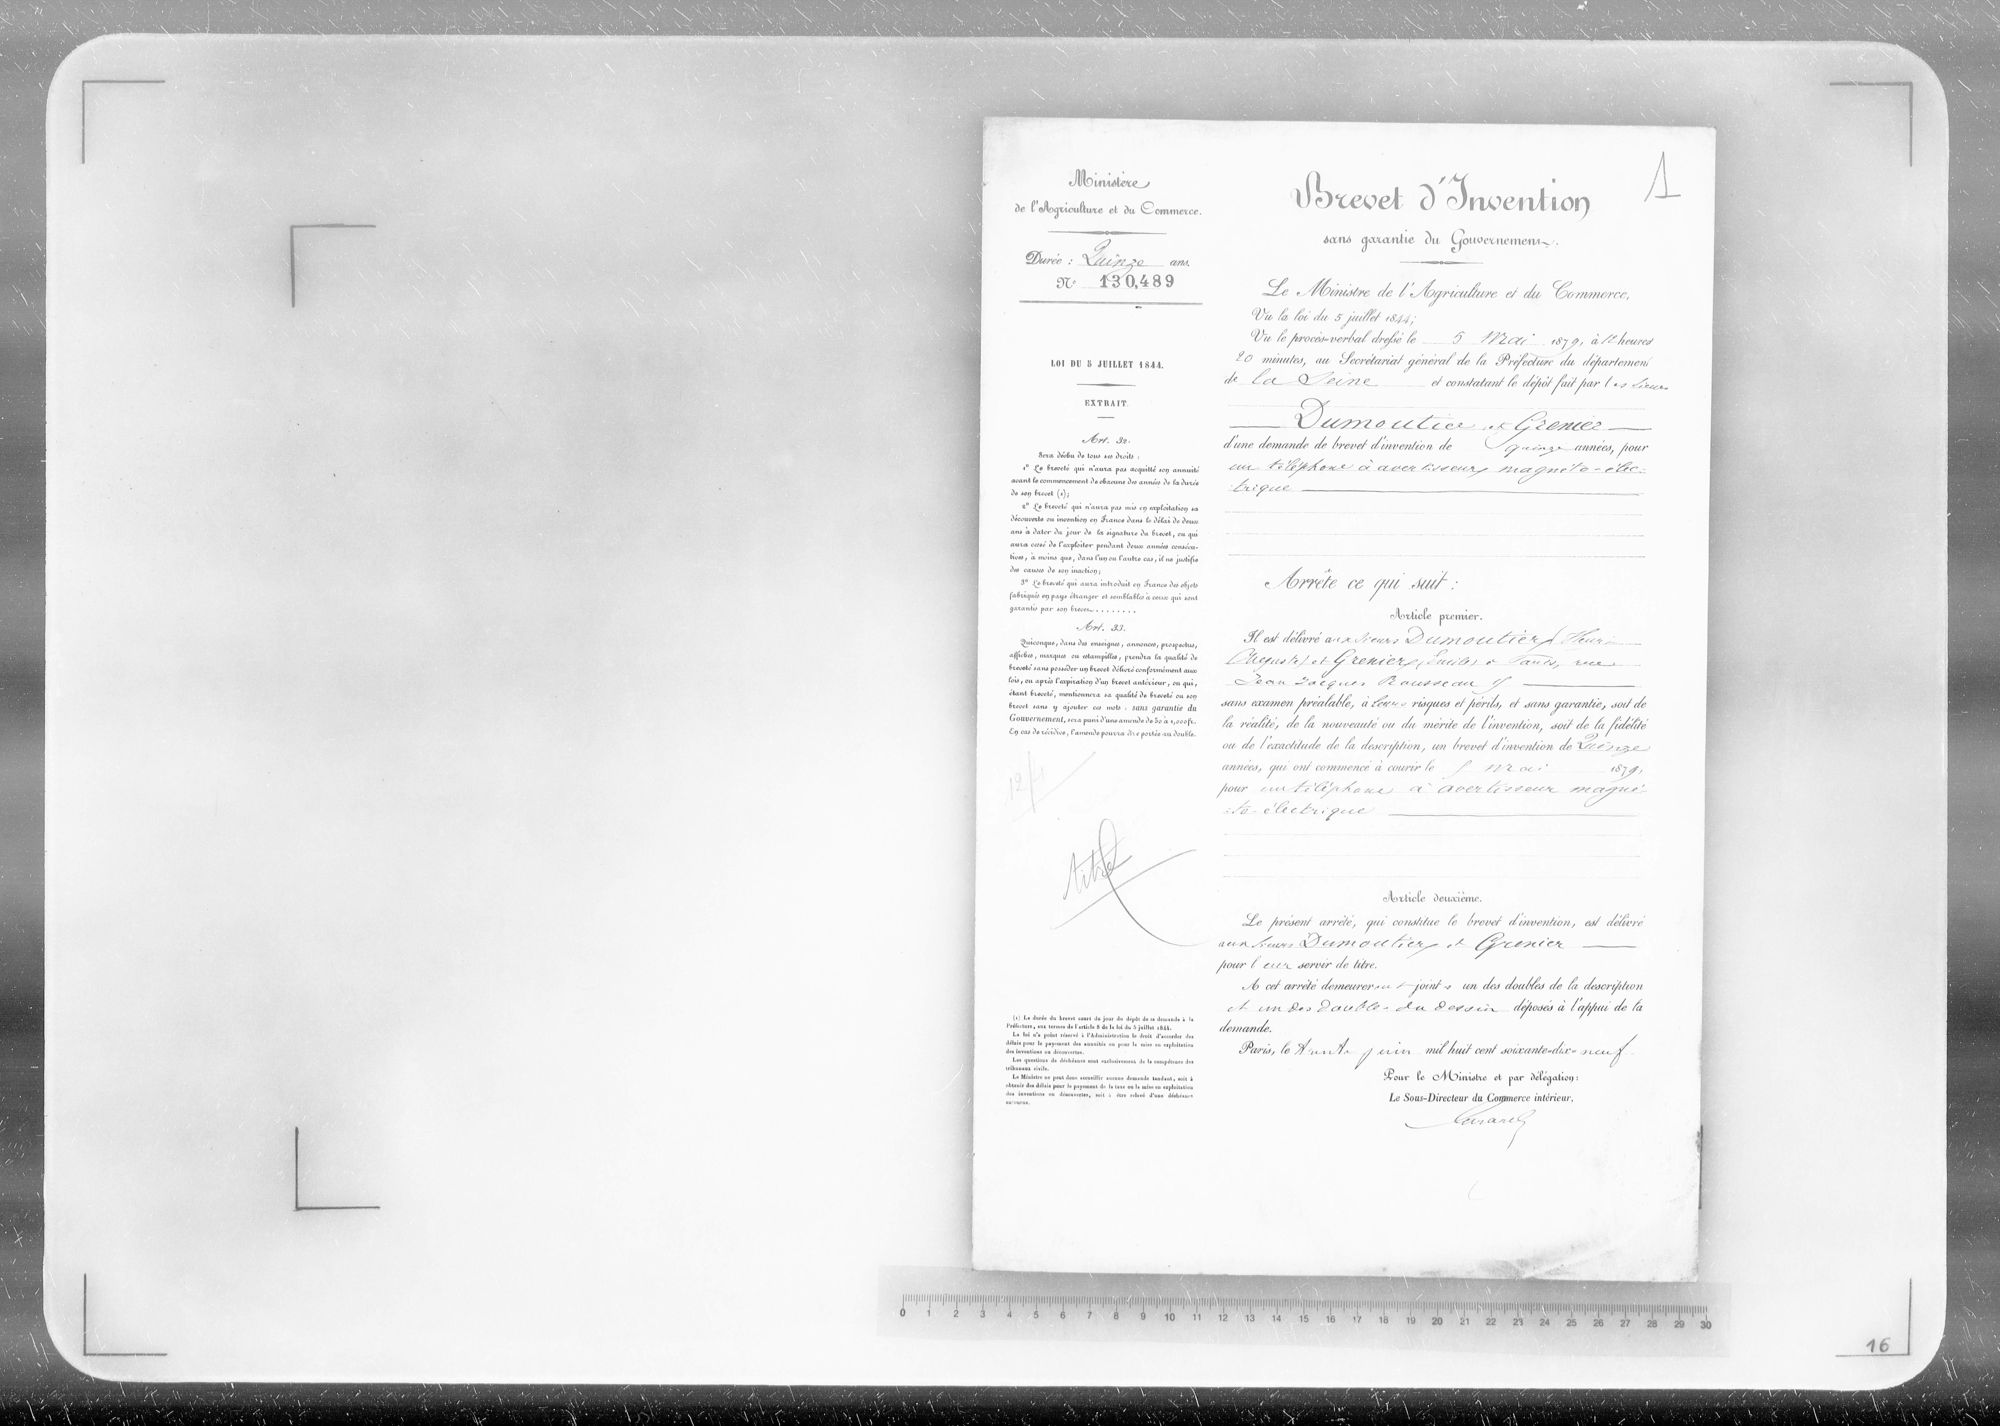 Ministère
de l'Agriculture et du Commerce.
Durée : Quinze ans.
N° 130,489
LOI DU 5 JUILLET 1844.
EXTRAIT
Art. 32.
Sera déchu de tous ses droits :
1° Le breveté qui n'aura pas acquitté son annuité
avant le commencement de chacune des années de la durée
de son brevet (1);
2° Le breveté qui n'aura pas mis en exploitation sa
découverte ou invention en France dans le délai de deux
ans à dater du jour de la signature du brevet, ou qui
aura cessé de l'exploiter pendant deux années consécu-
tives, à moins que, dans l'un ou l'autre cas, il ne justifie
des causes de son inaction;
3° Le breveté qui aura introduit en France des objets
fabriqués en pays étranger et semblables à ceux qui sont
garantis par son brevet........
Art. 33.
Quiconque, dans des enseignes, annonces, prospectus,
affiches, marques ou estampilles, prendra la qualité de
breveté sans posséder un brevet délivré conformément aux
lois, ou après l'expiration d'un brevet antérieur, ou qui,
étant breveté, mentionnera sa qualité de breveté ou son
brevet sans y ajouter ces mots : sans garantie du
Gouvernement, sera puni d'une amende de 50 à 1,000 fr.
En cas de récidive, l'amende pourra être portée au double.
titre
(1) La durée du brevet court du jour du dépôt de la demande à la
Préfecture, aux termes de l'article 8 de la loi du 5 juillet 1844.
La loi n'a point réservé à l'Administration le droit d'accorder des
délais pour le payement des annuités ou pour la mise en exploitation
des inventions ou découvertes.
Les questions de déchéances sont exclusivement de la compétence des
tribunaux civils.
Le Ministre ne peut donc accueillir aucune demande tendant, soit à
obtenir des délais pour le payement de la taxe ou la mise en exploitation
des inventions ou découvertes, soit à être relevé d'une déchéance
encourue.
1
Brevet d'Invention
sans garantie du Gouvernement.
Le Ministre de l'Agriculture et du Commerce,
Vu la loi du 5 juillet 1844;
Vu le procès-verbal dressé le 5 Mai 1879, à 12 heures
20 minutes, au Secrétariat général de la Préfecture du département
de la Seine et constatant le dépôt fait par les sieurs
Dumoutier et Grenier
d'une demande de brevet d'invention de quinze années, pour
un téléphone à avertisseur magnéto-élec-
trique
Arrête ce qui suit :
Article premier.
Il est délivré aux sieurs Dumoutier (Henri
Auguste) et Grenier (Emile) à Paris, rue
Jean Jacques Rousseau
sans examen préalable, à leurs risques et périls, et sans garantie, soit de
la réalité, de la nouveauté ou du mérite de l'invention, soit de la fidélité
ou de l'exactitude de la description, un brevet d'invention de Quinze
années, qui ont commencé à courir le 5 Mai 1879,
pour un téléphone à avertisseur magné-
to-électrique
Article deuxième.
Le présent arrêté, qui constitue le brevet d'invention, est délivré
aux sieurs Dumoutier et Grenier
pour leur servir de titre.
A cet arrêté demeureront joints un des doubles de la description
et un des doubles du dessin déposés à l'appui de la
demande.
Paris, le trente juin mil huit cent soixante-dix-neuf.
Pour le Ministre et par délégation:
Le Sous-Directeur du Commerce intérieur,
0 1 2 3 4 5 6 7 8 9 10 11 12 13 14 15 16 17 18 19 20 21 22 23 24 25 26 27 28 29 30
16